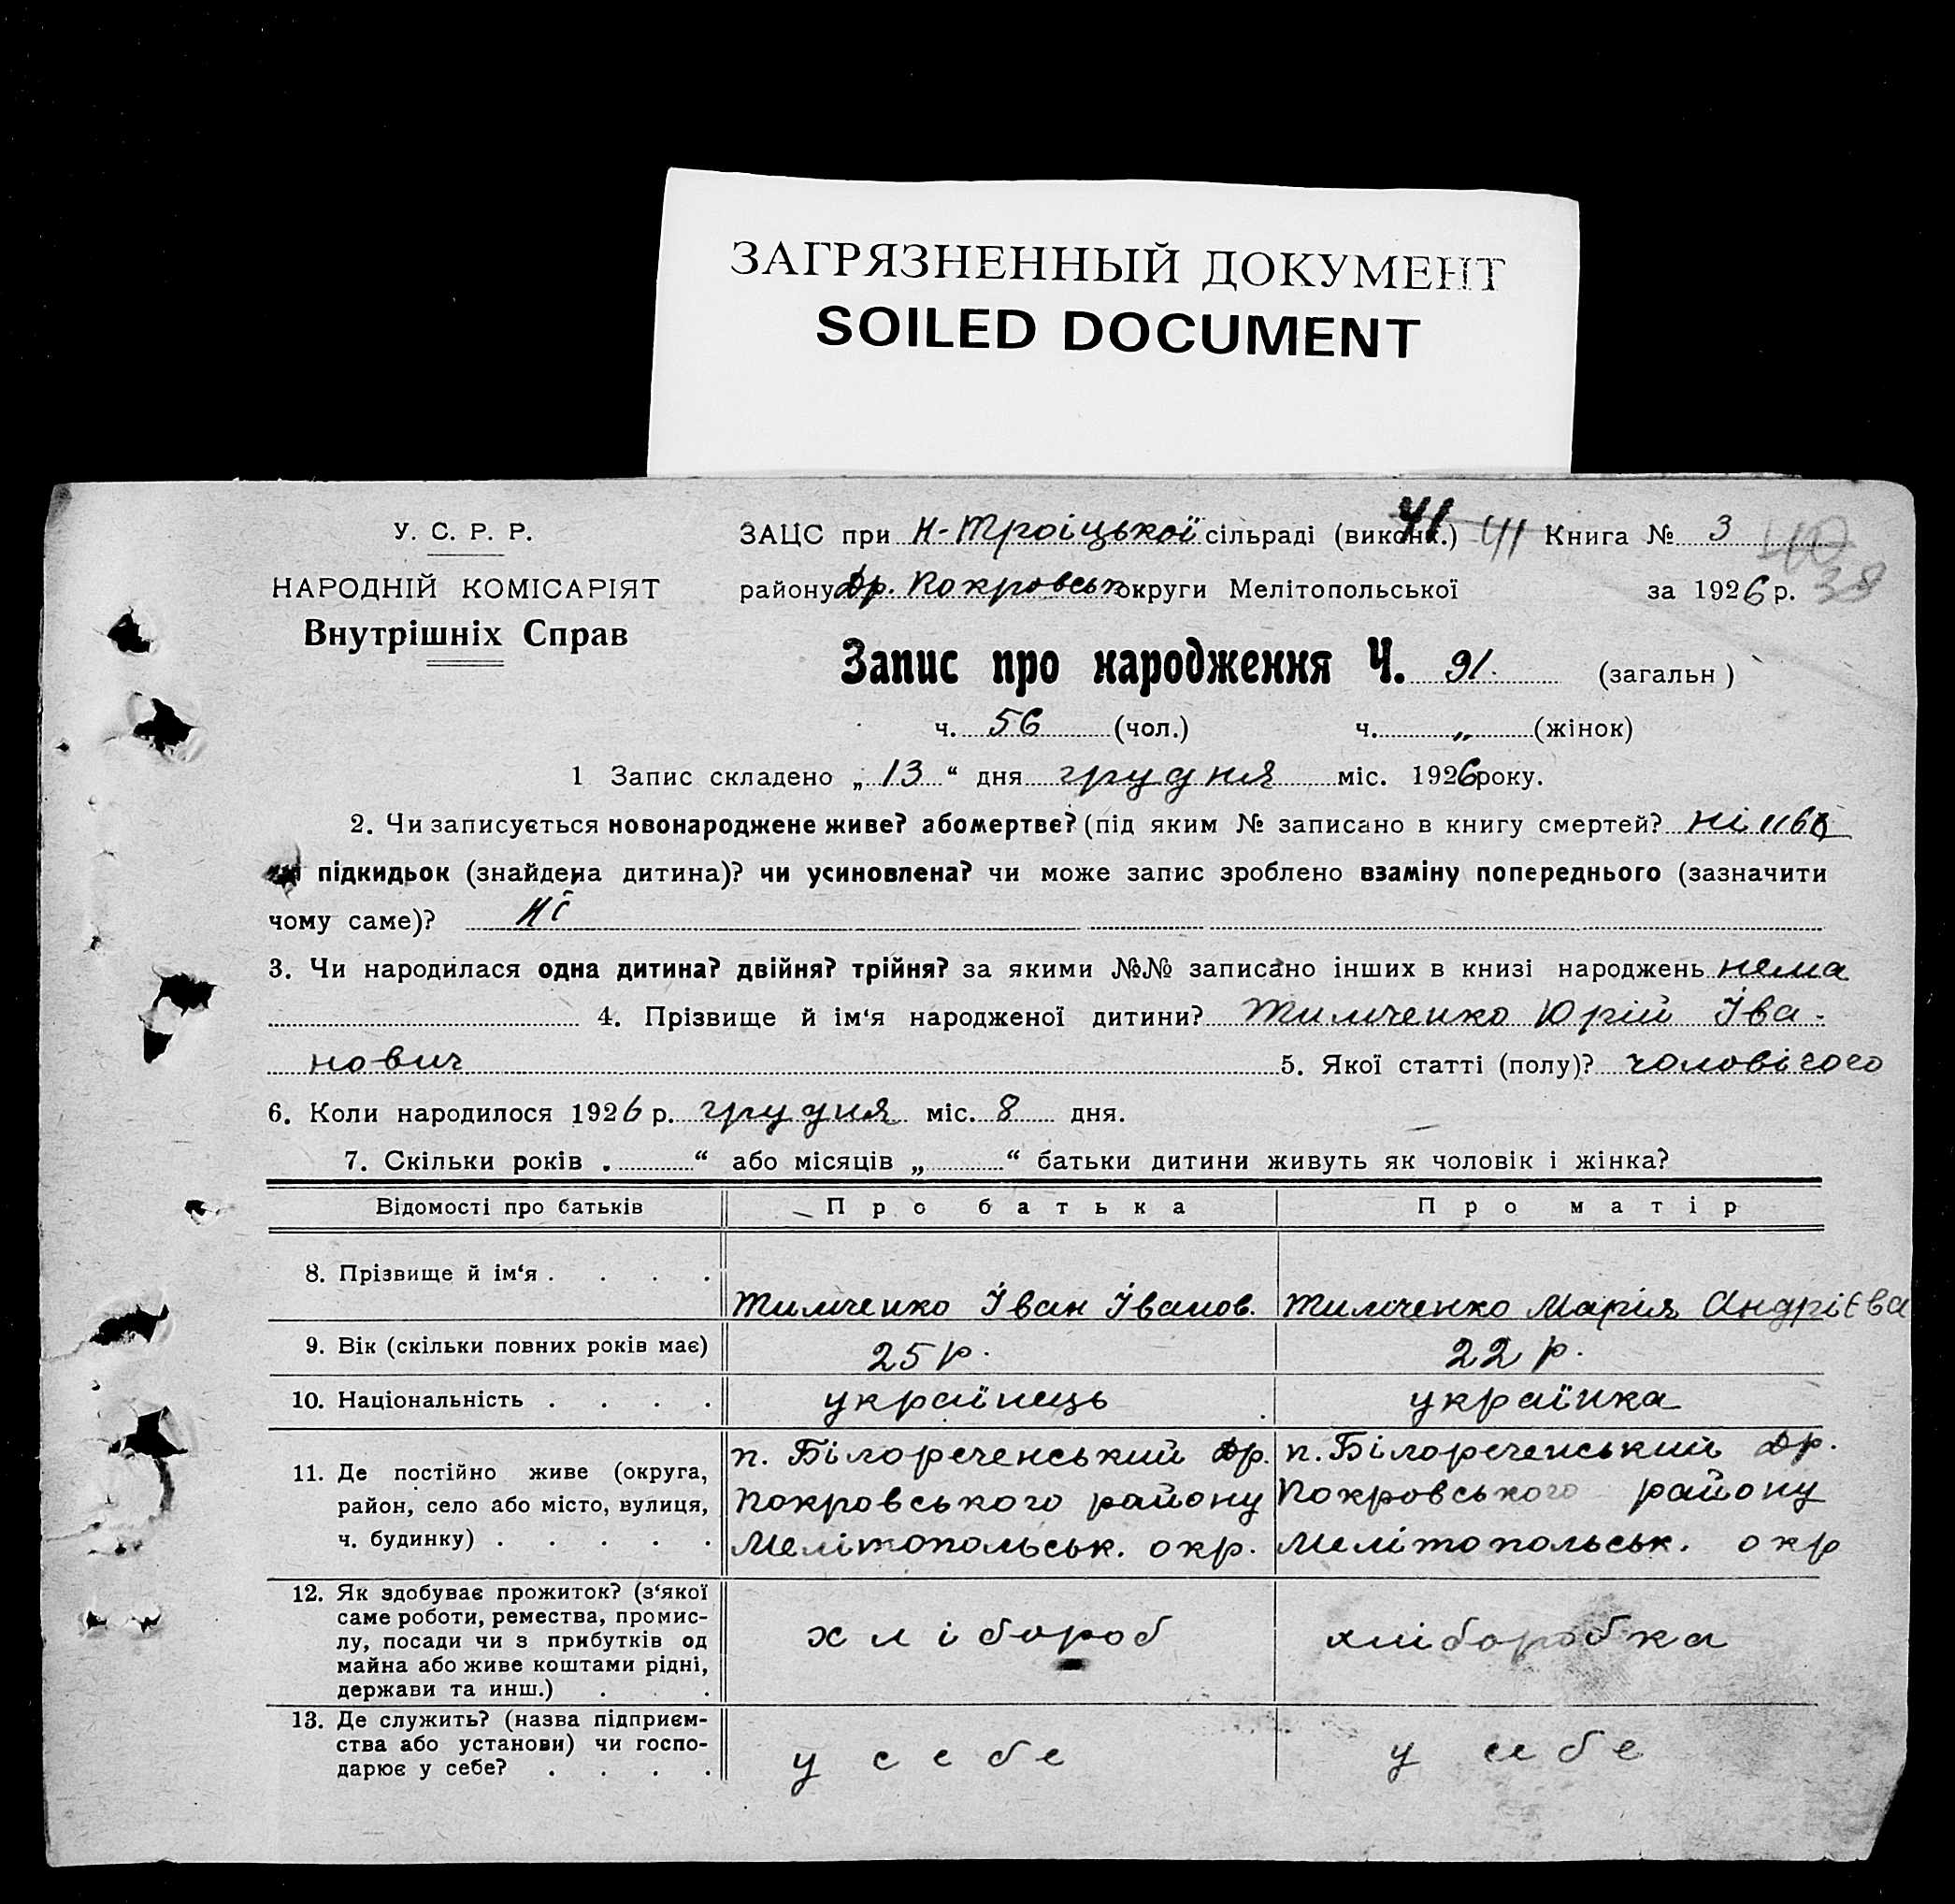 ЗАГРЯЗНЕННЫЙ ДОКУМЕНТ
SOILED DOCUMENT
У. С. Р. Р.
НАРОДНІЙ КОМІСАРІЯТ
Внутрішніх Справ
ЗАЦС при Н-Троіцькоі сільраді (викон.) 41 41 Книга № 3 40
району Др. Покровськ округи Мелітопольської за 1926 р. 38
Запис про народження Ч. 91. (загальн )
ч. 56 (чол.) ч. „ (жінок)
1 Запис складено „ 13 “ дня грудня міс. 1926 року.
2. Чи записується новонароджене живе? або мертве? (під яким № записано в книгу смертей?
підкидьок (знайдена дитина)? чи усиновлена? чи може запис зроблено взаміну попереднього (зазначити
чому саме)? Ні
3. Чи народилася одна дитина? двійня? трійня? за якими №№ записано інших в книзі народжень нема
4. Прізвище й ім‘я народженої дитини? Тимченко Юрій Іва-
нович 5. Якої статті (полу)? чоловічого
6. Коли народилося 1926 р. грудня міс. 8 дня.
7. Скільки років . “ або місяців „ “ батьки дитини живуть як чоловік і жінка?
Відомості про батьків Про батька Про матір
8. Прізвище й ім‘я . . . . Тимченко Іван Іванов. Тимченко Марія Андрієва
9. Вік (скільки повних років має) 25 р. 22 р.
10. Національність . . . . українець українка
11. Де постійно живе (округа, п. Білореченський Др. п. Білореченський Др.
район, село або місто, вулиця, Покровського району Покровського району
ч. будинку) . . . . . Мелітопольськ. окр. Мелітопольськ. окр
12. Як здобуває прожиток? (з‘якої
саме роботи, ремества, промис-
лу, посади чи з прибутків од хлібороб хліборобка
майна або живе коштами рідні,
держави та инш.) . . .
13. Де служить? (назва підприєм-
ства або установи) чи госпо-
дарює у себе? . . . . у себе у себе